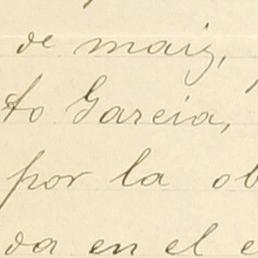 de maig,
to Garcia,
por la ob
da en el e